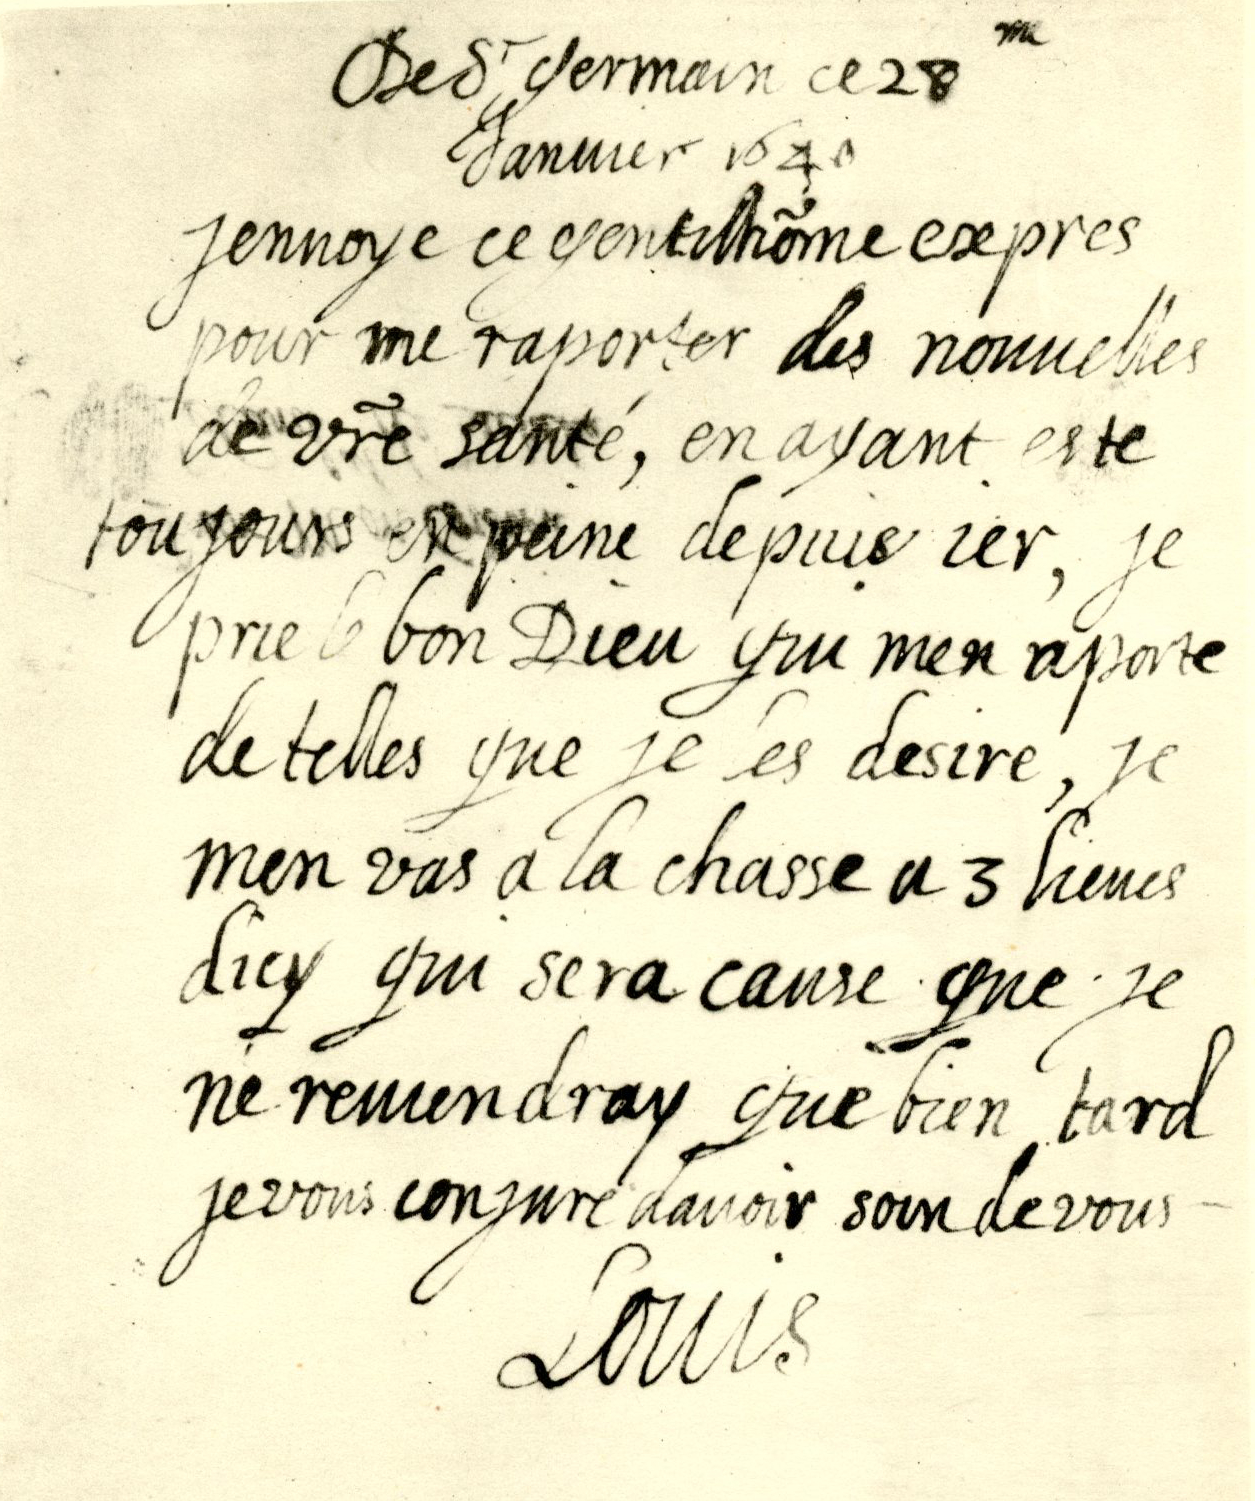 De St germain ce 28me
Januier 1640
jenuoye ce gentilhõme expres
pour me raporter des nouuelles
de vr̃e santé, en ayant este
toujours en peine depuis ier, je
prie le bon Dieu qui men raporte
de telles que je les desire, je
men vas a la chasse a 3 lieues
dicy qui sera cause que je
ne reuiendray que bien tard
je vous conjure dauoir soin de vous
Louis